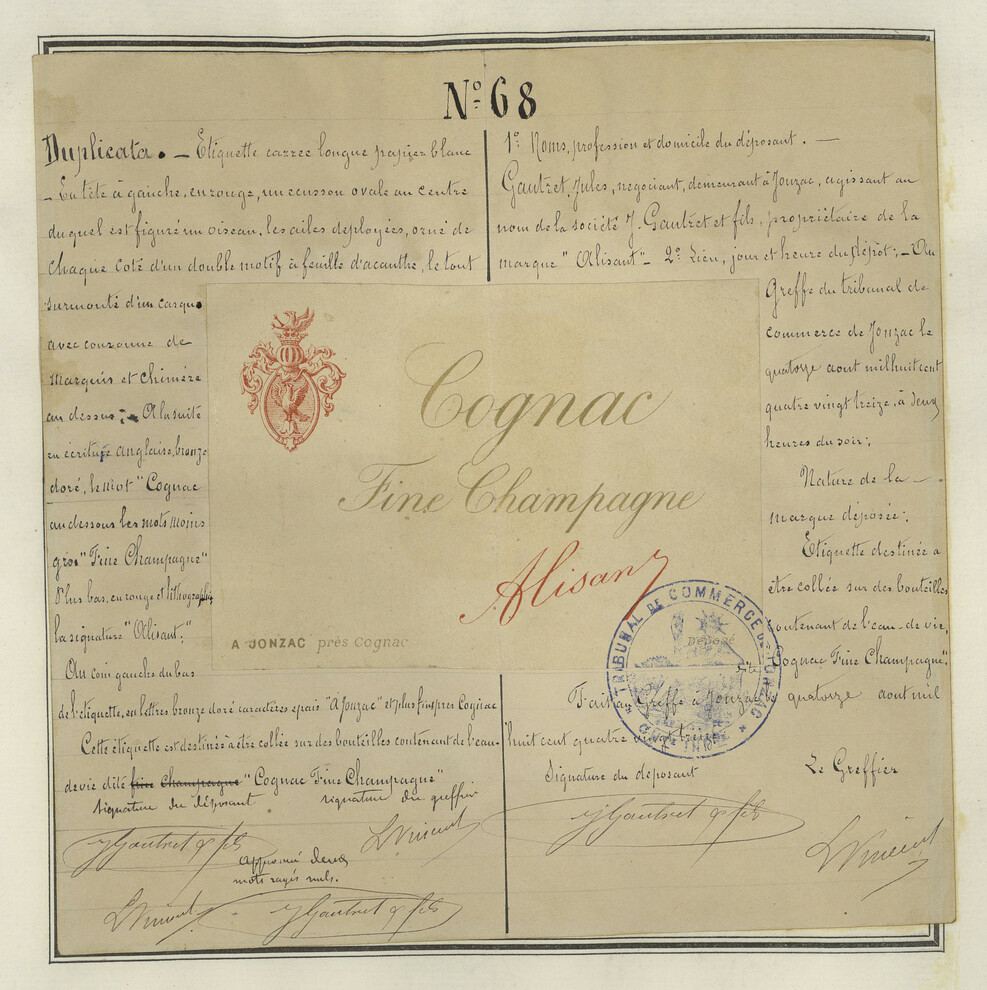 N° 68
Duplicata. — Etiquette carree longue papier blanc
- En tête à gauche, en rouge, un ecusson ovale au centre
duquel est figuré un oiseau, les ailes deployées, orné de
chaque coté d'un double motif à feuille d'acanthe, le tout
surmonté d'un casque
avec couronne de
Marquis et chimère
au dessus; - A la suite
en écriture anglaise, bronze
doré, le mot "Cognac
au dessous les mots moins
gros "Fine Champagne"
Plus bas, en rouge et lithographié
la signature "Alisant;"
Au coin gauche du bas
de l'étiquette, en lettres bronze doré caractères épais "A Jonzac" et plus fins près Cognac
Cette étiquette est destinée à être collée sur des bouteilles contenant de l'eau-
de vie dite fine Champagne "Cognac Fine Champagne"
signature du déposant signature du greffier
J Gautret & fils L Vincent
Approuvé deux
mots rayés nuls.
L Vincent J Gautret & fils
1° Noms, profession et domicile du déposant. —
Gautret, Jules, negociant, demeurant à Jonzac, agissant au
nom de la société J. Gautret et fils, propriétaire de la
marque "Alisant" - 2° Lieu, jour et heure du dépôt; - Au
Greffe du tribunal de
commerce de Jonzac le
quatorze aout mil huit cent
quatre vingt treize, à deux
heures du soir;
Nature de la -
marque déposée;
Etiquette destinée a
etre collée sur des bouteilles
contenant de l'eau-de vie,
dite "Cognac Fine Champagne".
Fait au Greffe à Jonzac le quatorze aout mil
huit cent quatre vingt treize
Signature du déposant Le Greffier
J Gautret & fils
L Vincent
Cognac
Fine Champagne
Alisant
A JONZAC près Cognac
Déposé
TRIBUNAL DE COMMERCE DE JONZAC